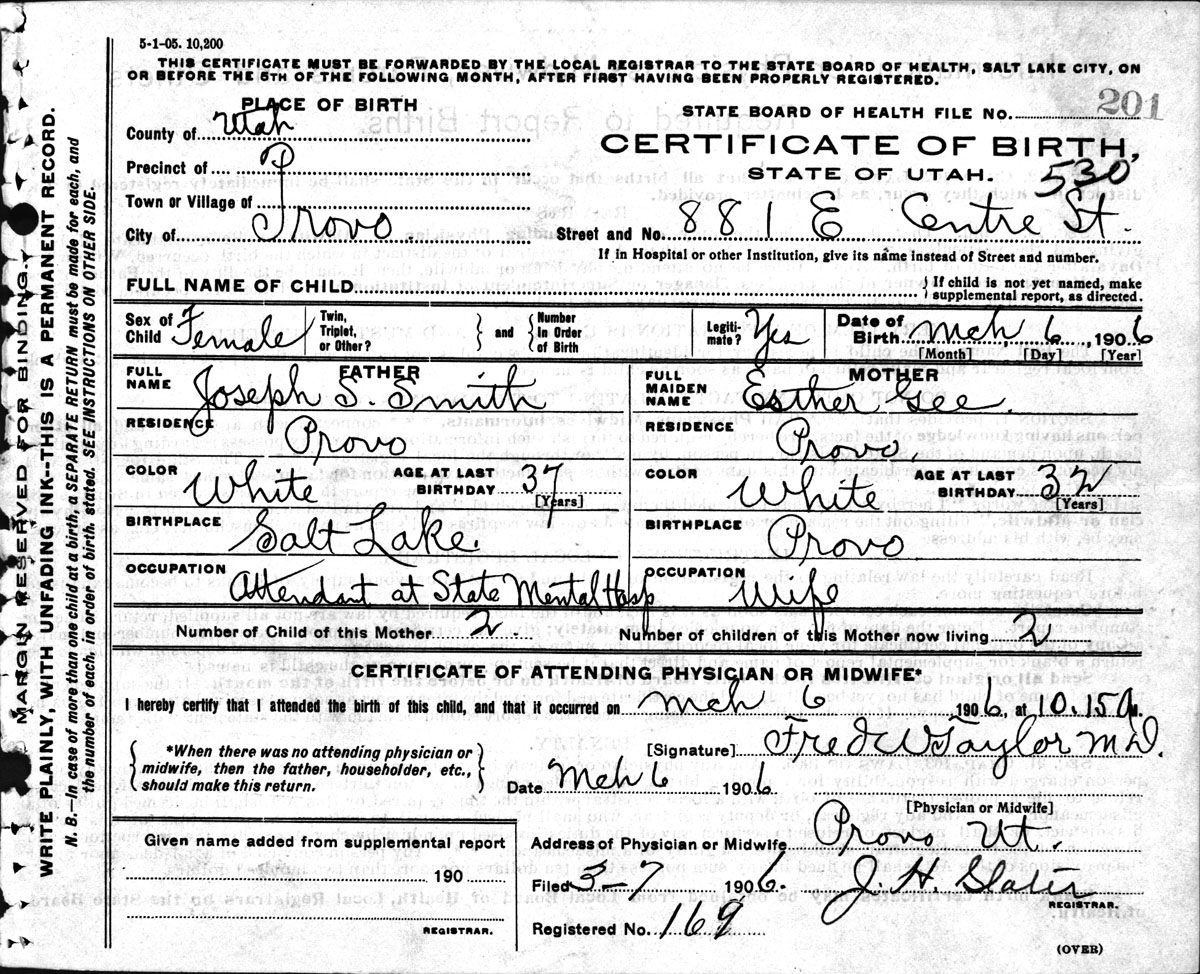 5-1-05. 10,200
THIS CERTIFICATE MUST BE FORWARDED BY THE LOCAL REGISTRAR TO THE STATE BOARD OF HEALTH, SALT LAKE CITY, ON
OR BEFORE THE 5TH OF THE FOLLOWING MONTH, AFTER FIRST HAVING BEEN PROPERLY REGISTERED.
MARGIN RESERVED FOR BINDING.
WRITE PLAINLY, WITH UNFADING INK--THIS IS A PERMANENT RECORD.
N. B. In case of more than one child at a birth, a SEPARATE RETURN must be made for each, and
the number of each, in order of birth, stated. SEE INSTRUCTIONS ON OTHER SIDE.
PLACE OF BIRTH
County of Utah
Precinct of
Town or Village of
City of Provo
STATE BOARD OF HEALTH FILE NO. 201
CERTIFICATE OF BIRTH,
STATE OF UTAH. 530
Street and No. 881 E Centre St.
If in Hospital or other Institution, give its name instead of Street and number.
FULL NAME OF CHILD } If child is not yet named, make
supplemental report, as directed.
Sex of Child Female
Twin, Triplet, or Other? } and { Number In Order of Birth
Legiti-mate? Yes
Date of Birth Mch 6, 1906
[Month] [Day] [Year]
FATHER
FULL NAME Joseph S. Smith
RESIDENCE Provo
COLOR White AGE AT LAST BIRTHDAY 37
[Years]
BIRTHPLACE Salt Lake.
OCCUPATION Attendant at State Mental Hosp
MOTHER
FULL MAIDEN NAME Esther Gee.
RESIDENCE Provo.
COLOR White AGE AT LAST BIRTHDAY 32
[Years]
BIRTHPLACE Provo
OCCUPATION Wife
Number of Child of this Mother 2. Number of children of this Mother now living 2
CERTIFICATE OF ATTENDING PHYSICIAN OR MIDWIFE*
I hereby certify that I attended the birth of this child, and that it occurred on Mch 6 1906, at 10.15 a M.
{ *When there was no attending physician or
midwife, then the father, householder, etc.,
should make this return. }
[Signature] Fred W Taylor M D.
Date Mch 6 1906
[Physician or Midwife]
Given name added from supplemental report
190
REGISTRAR.
Address of Physician or Midwife Provo Ut.
Filed 3-7 1906. J. H. Slater
REGISTRAR.
Registered No. 169
(OVER)